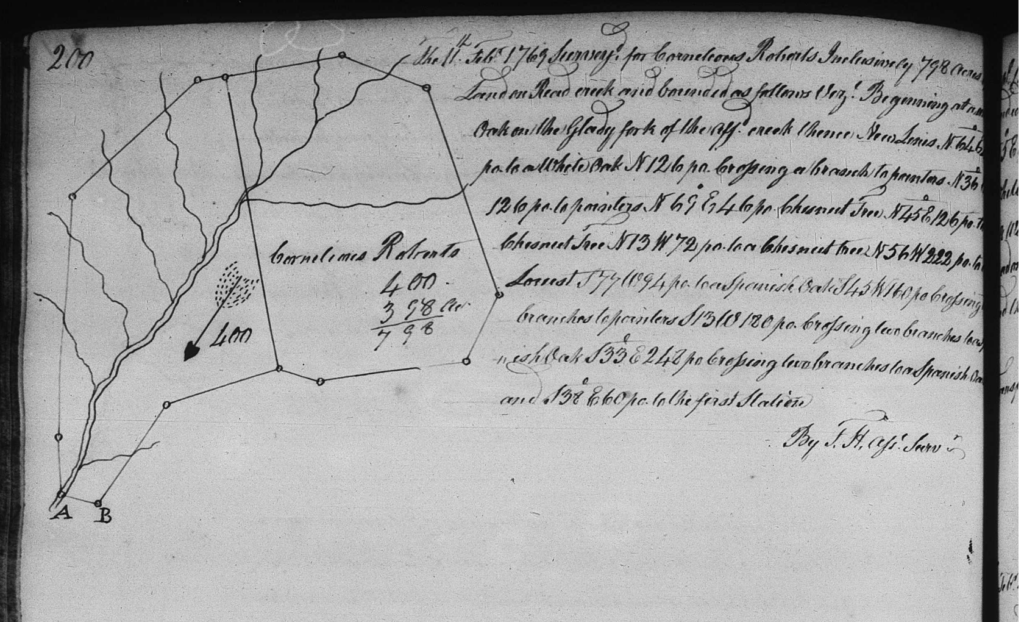 200
The 11th Feby. 1769 Survey'd for Corneleous Roberts Inclusively 798 acres
Land on Read creek and bounded as follows Vizt. Begenning at a
Oak on the Glady fork of the aff. creek thence New Lines N 64
po. to a White Oak N 12 6 po. Crossing a branch to pointers N 36
126 po. to pointers N 69 E 46 po. Chesneet Tree N 45 E 126 po. to
Chesneet Tree N 13 W 72 po. to a Chesneet tree N 56 W 222 po. to
Locust S 77 W 94 po. to a Spanish Oak S 45 W 160 po Crossing
branches to pointers S 13 W 180 po. Crossing two branches to a
nish Oak S 33 E 242 po Crossing two branches to a Spanish Oa
and S 38 E 60 po. to the first Station
By T. H. Asst. Survr.
Corneleous Roberts
400
398 Ac
798
400
A B